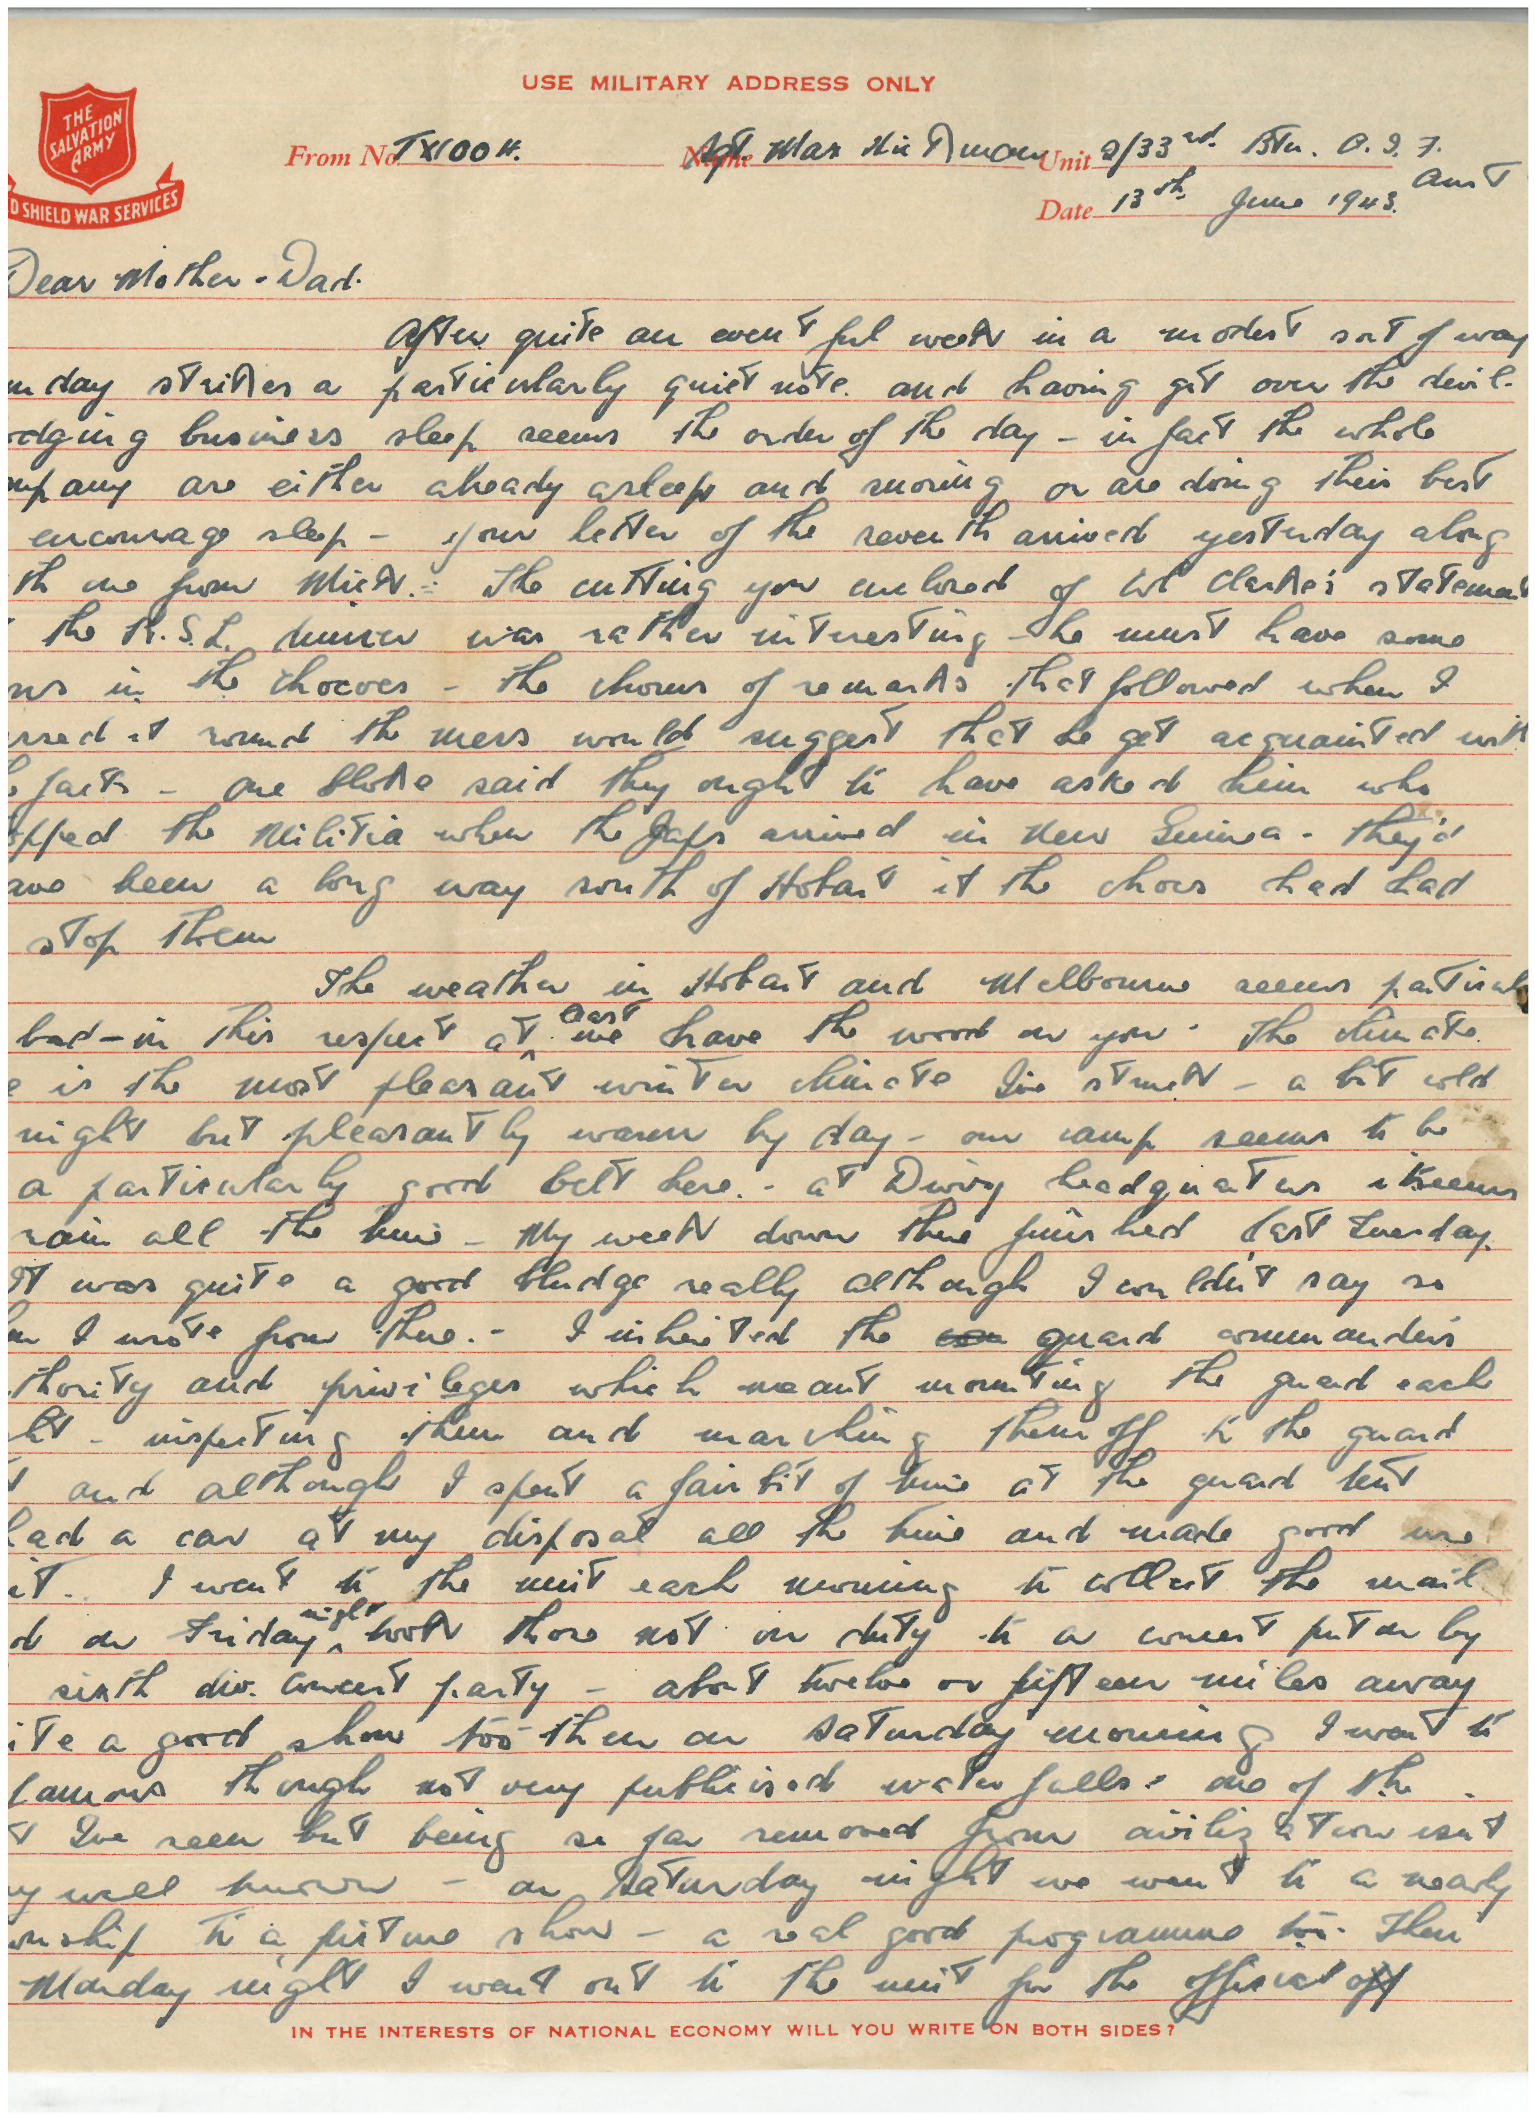 USE MILITARY ADDRESS ONLY
THE SALVATION ARMY
D SHIELD WAR SERVICES
From No. TX1004. Name Sgt. Max Hickman Unit 2/33rd. Btn. A.I.F.
Aust
Date 13th June 1943.
Dear Mother - Dad.
After quite an eventful week in a modest sort of way
nday strikes a particularly quiet note and having got over the devil-
odging business sleep seems the order of the day - in fact the whole
mpany are either already asleep and snoring or are doing their best
encourage sleep - your letter of the seventh arrived yesterday along
th one from Mick. - The cutting you enclosed of Col Clarke's statement
the R.S.L. dinner was rather interesting - he must have some
ns in the chocos - the chorus of remarks that followed when I
ssed it round the mess would suggest that he get acquainted with
e facts - one bloke said they ought to have asked him who
opped the Militia when the Japs arrived in New Guinea - they'd
ave been a long way south of Hobart if the chocs had had
stop them
The weather in Hobart and Melbourne seems particul
bad - in this respect at least we have the wood on you. The climate
e is the most pleasant winter climate I've struck - a bit cold
night but pleasantly warm by day - our camp seems to be
a particularly good belt here. - at Divvy headquarters it seems
rain all the time - My week down there finished last Tuesday.
It was quite a good bludge really although I couldn't say so
en I wrote from there. - I inherited the guard commander's
thority and privileges which meant mounting the guard each
ht - inspecting them and marching them off to the guard
t and although I spent a fair bit of time at the guard tent
had a car at my disposal all the time and made good use
it. I went to the unit each morning to collect the mail
d on Friday night took those not on duty to a concert put on by
sixth div. concert party - about twelve or fifteen miles away
ite a good show too - then on Saturday morning I went to
famous though not very publicised water falls - one of the
t I've seen but being so far removed from civilization isn't
ry well known - on Saturday night we went to a nearby
wnship to a picture show - a real good programme too. Then
Monday night I went out to the unit for the official opp
IN THE INTERESTS OF NATIONAL ECONOMY WILL YOU WRITE ON BOTH SIDES?